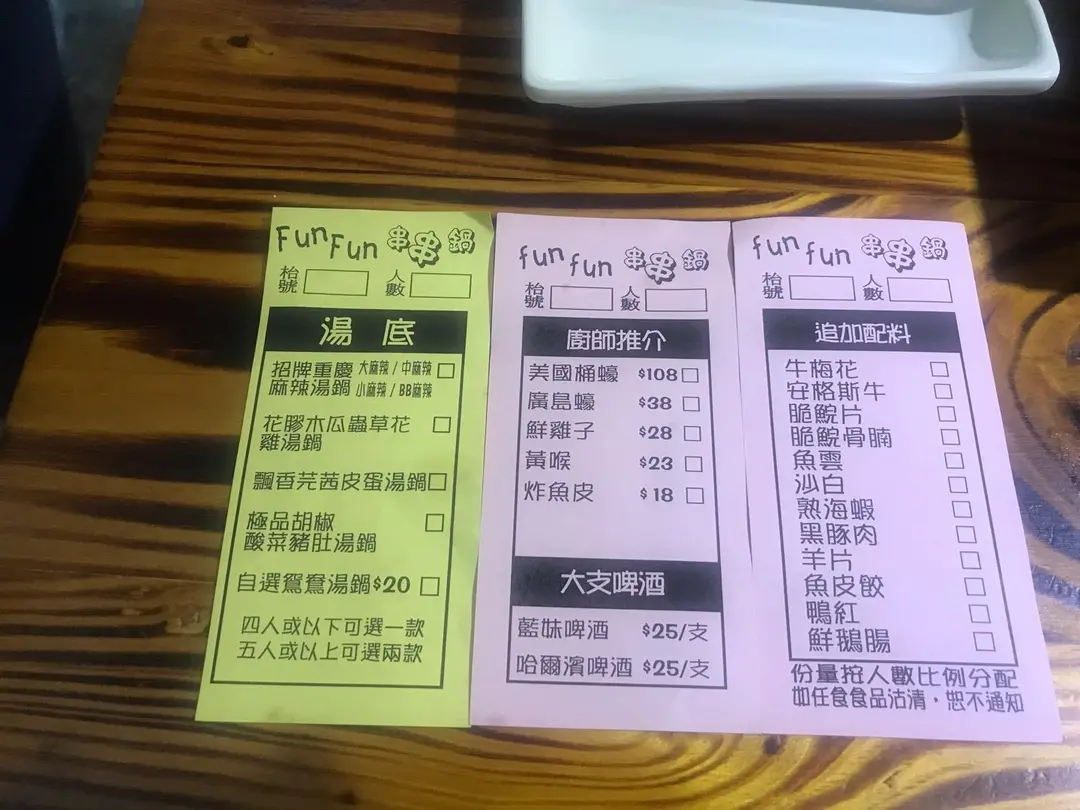 Fun Fun 串串鍋
枱號 人數
湯底
招牌重慶 大麻辣 / 中麻辣
麻辣湯鍋 小麻辣 / BB麻辣
花膠木瓜蟲草花
雞湯鍋
飄香芫茜皮蛋湯鍋
極品胡椒
酸菜豬肚湯鍋
自選鴛鴦湯鍋$20
四人或以下可選一款
五人或以上可選兩款
fun fun 串串鍋
枱號 人數
廚師推介
美國桶蠔 $108
廣島蠔 $38
鮮雞子 $28
黃喉 $23
炸魚皮 $18
大支啤酒
藍妹啤酒 $25/支
哈爾濱啤酒 $25/支
fun fun 串串鍋
枱號 人數
追加配料
牛梅花
安格斯牛
脆鯇片
脆鯇骨腩
魚雲
沙白
熟海蝦
黑豚肉
羊片
魚皮餃
鴨紅
鮮鵝腸
份量按人數比例分配
如任食食品沽清，恕不通知